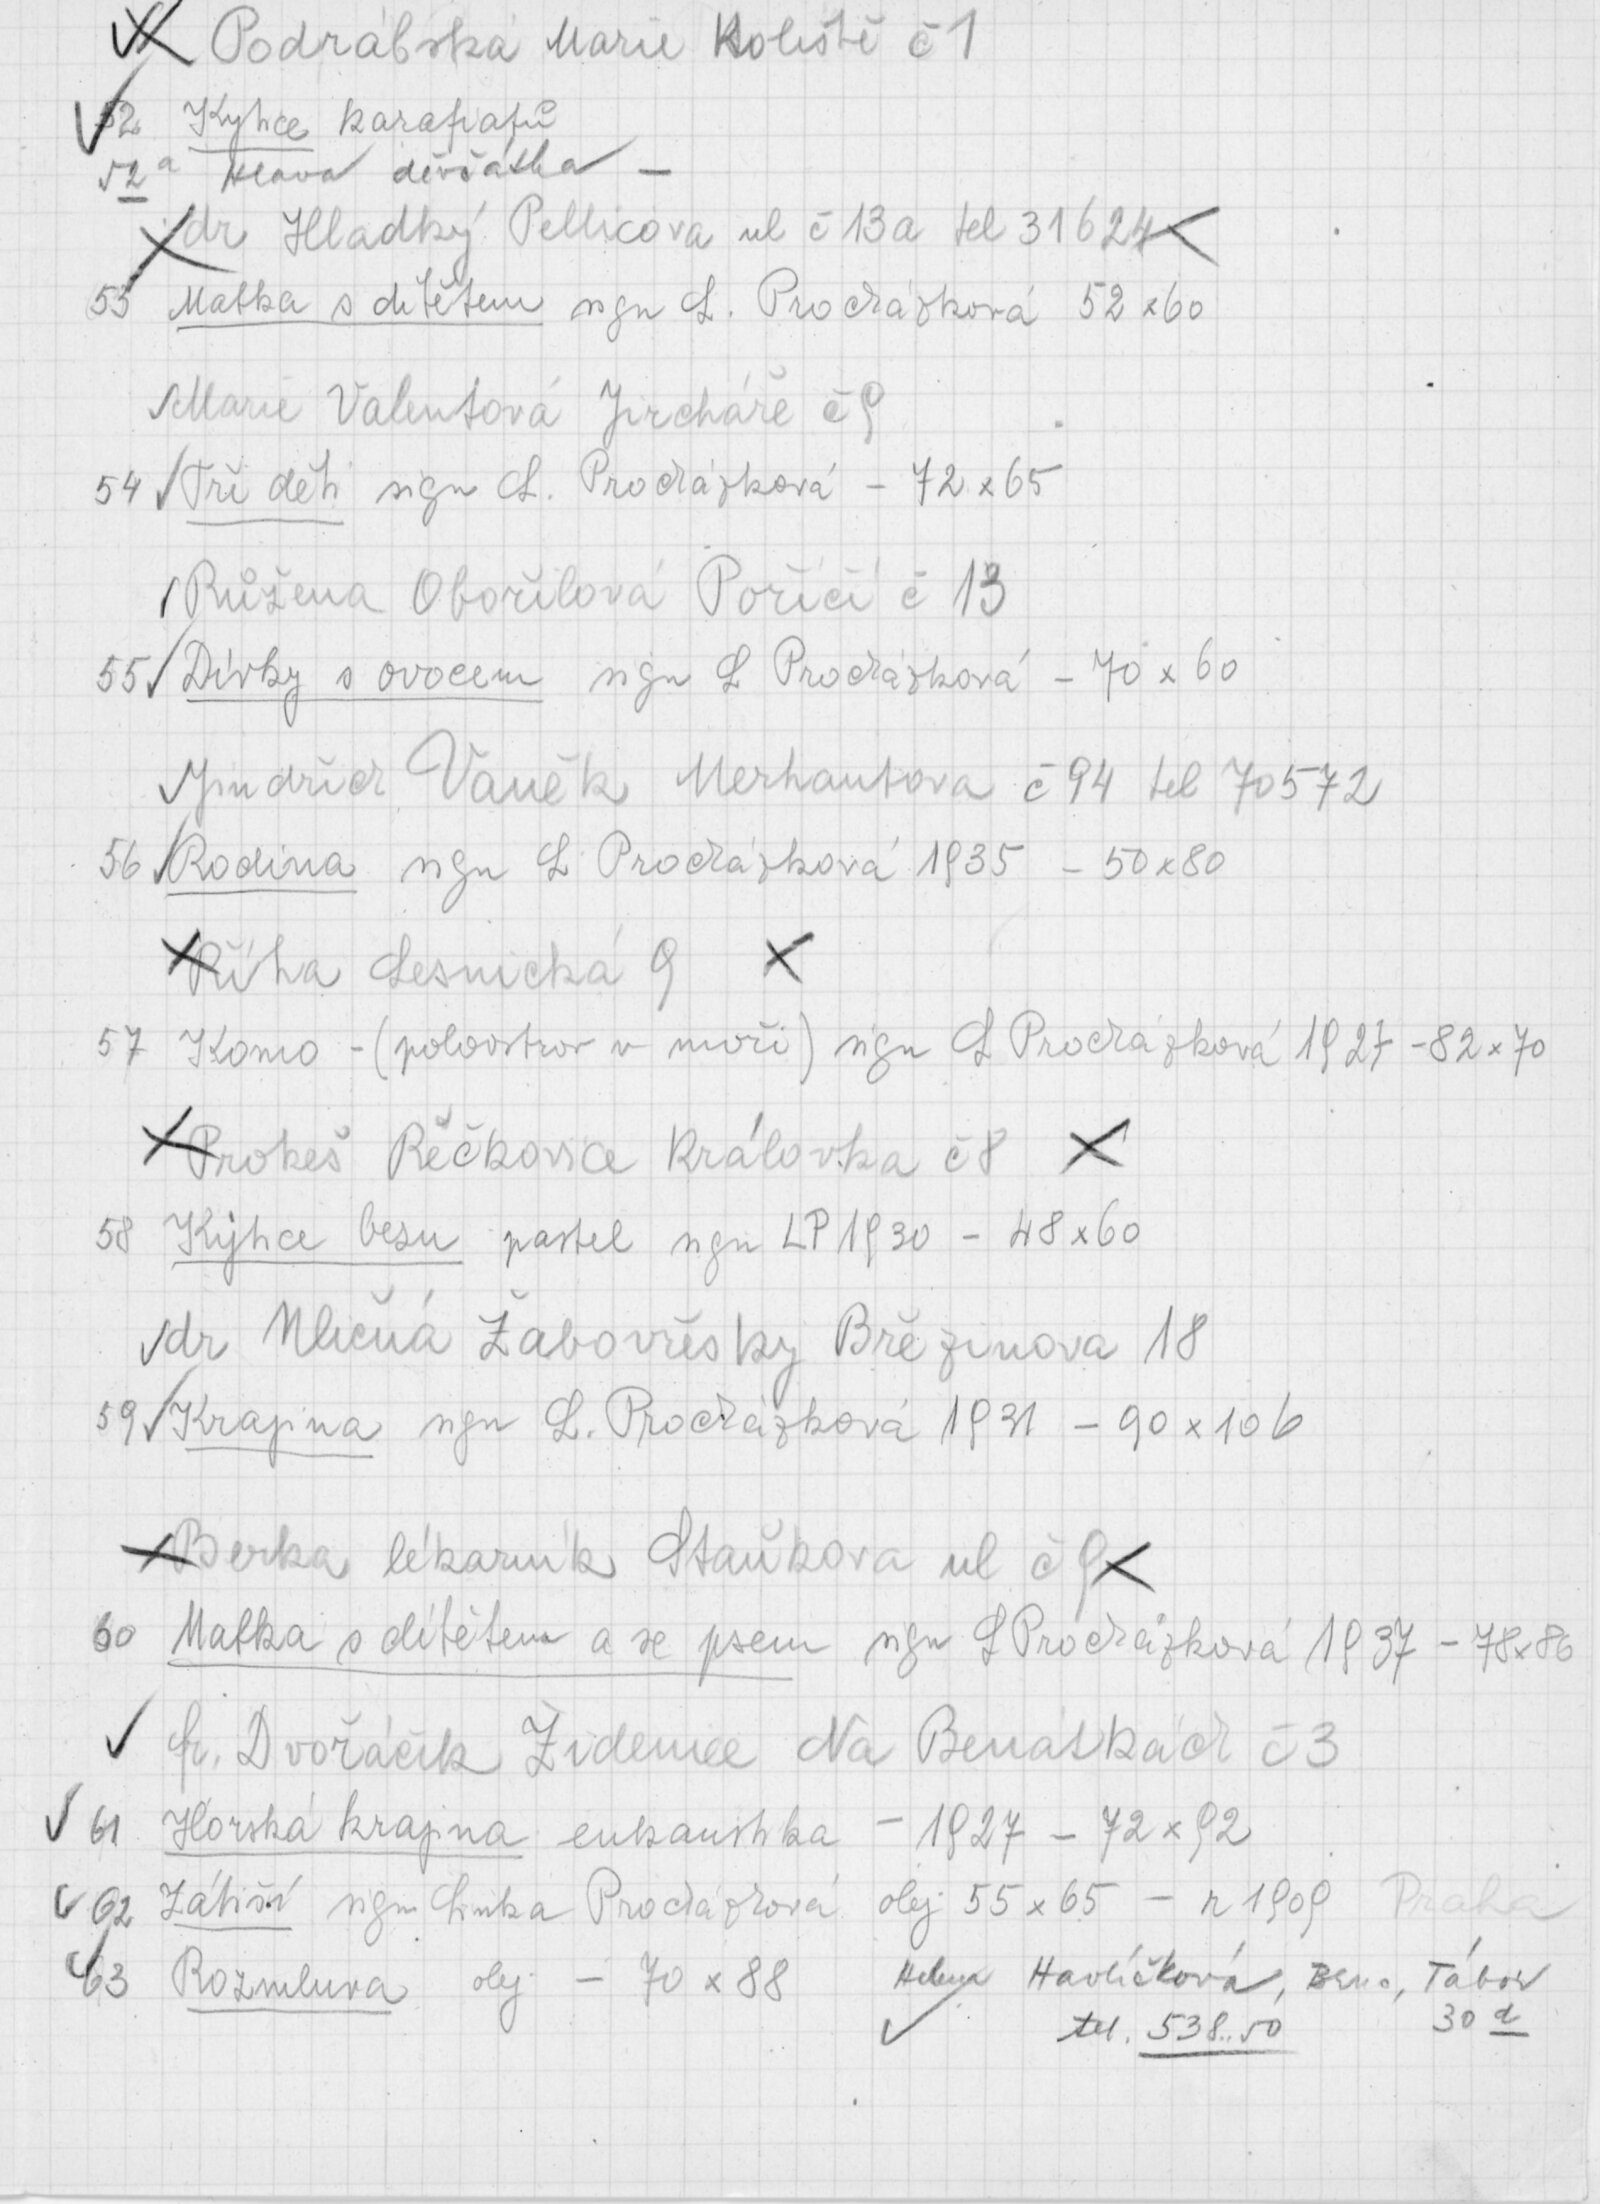 Podrábská Marie Koliště č 1
52 Kytice karafiátů
52a Hlava děvčátka –
dr Hladký Pellicova ul č 13a tel 31624
53 Matka s dítětem sign L. Procházková 52 x 60
Marie Valentová Jircháře č 9
54 Tři děti sign L. Procházková – 72 x 65
Růžena Obořilová Poříčí č 13
55 Dívky s ovocem sign L Procházková – 70 x 60
Jindřich Vaněk Merhautova č 94 tel 70572
56 Rodina sign L Procházková 1935 – 50 x 80
Říha Lesnická 9
57 Komo – (poloostrov v moři) sign L Procházková 1927 – 82 x 70
Prokeš Řečkovice Královka č 8
58 Kytice bezu pastel sign LP 1930 – 48 x 60
dr Mličná Žabovřesky Březinova 18
59 Krajina sign L. Procházková 1931 – 90 x 106
Berka lékarník Staňkova ul č 9
60 Matka s dítětem a se psem sign L Procházková 1937 – 78 x 86
fr. Dvořáčik Židenice Na Benátkách č 3
61 Horská krajina enkaustika – 1927 – 72 x 92
62 Zátiší sign Linka Procházková olej 55 x 65 – r 1909 Praha
63 Rozmluva olej – 70 x 88 Helena Havlíčková, Brno, Tábor
tel. 538..50 30 d